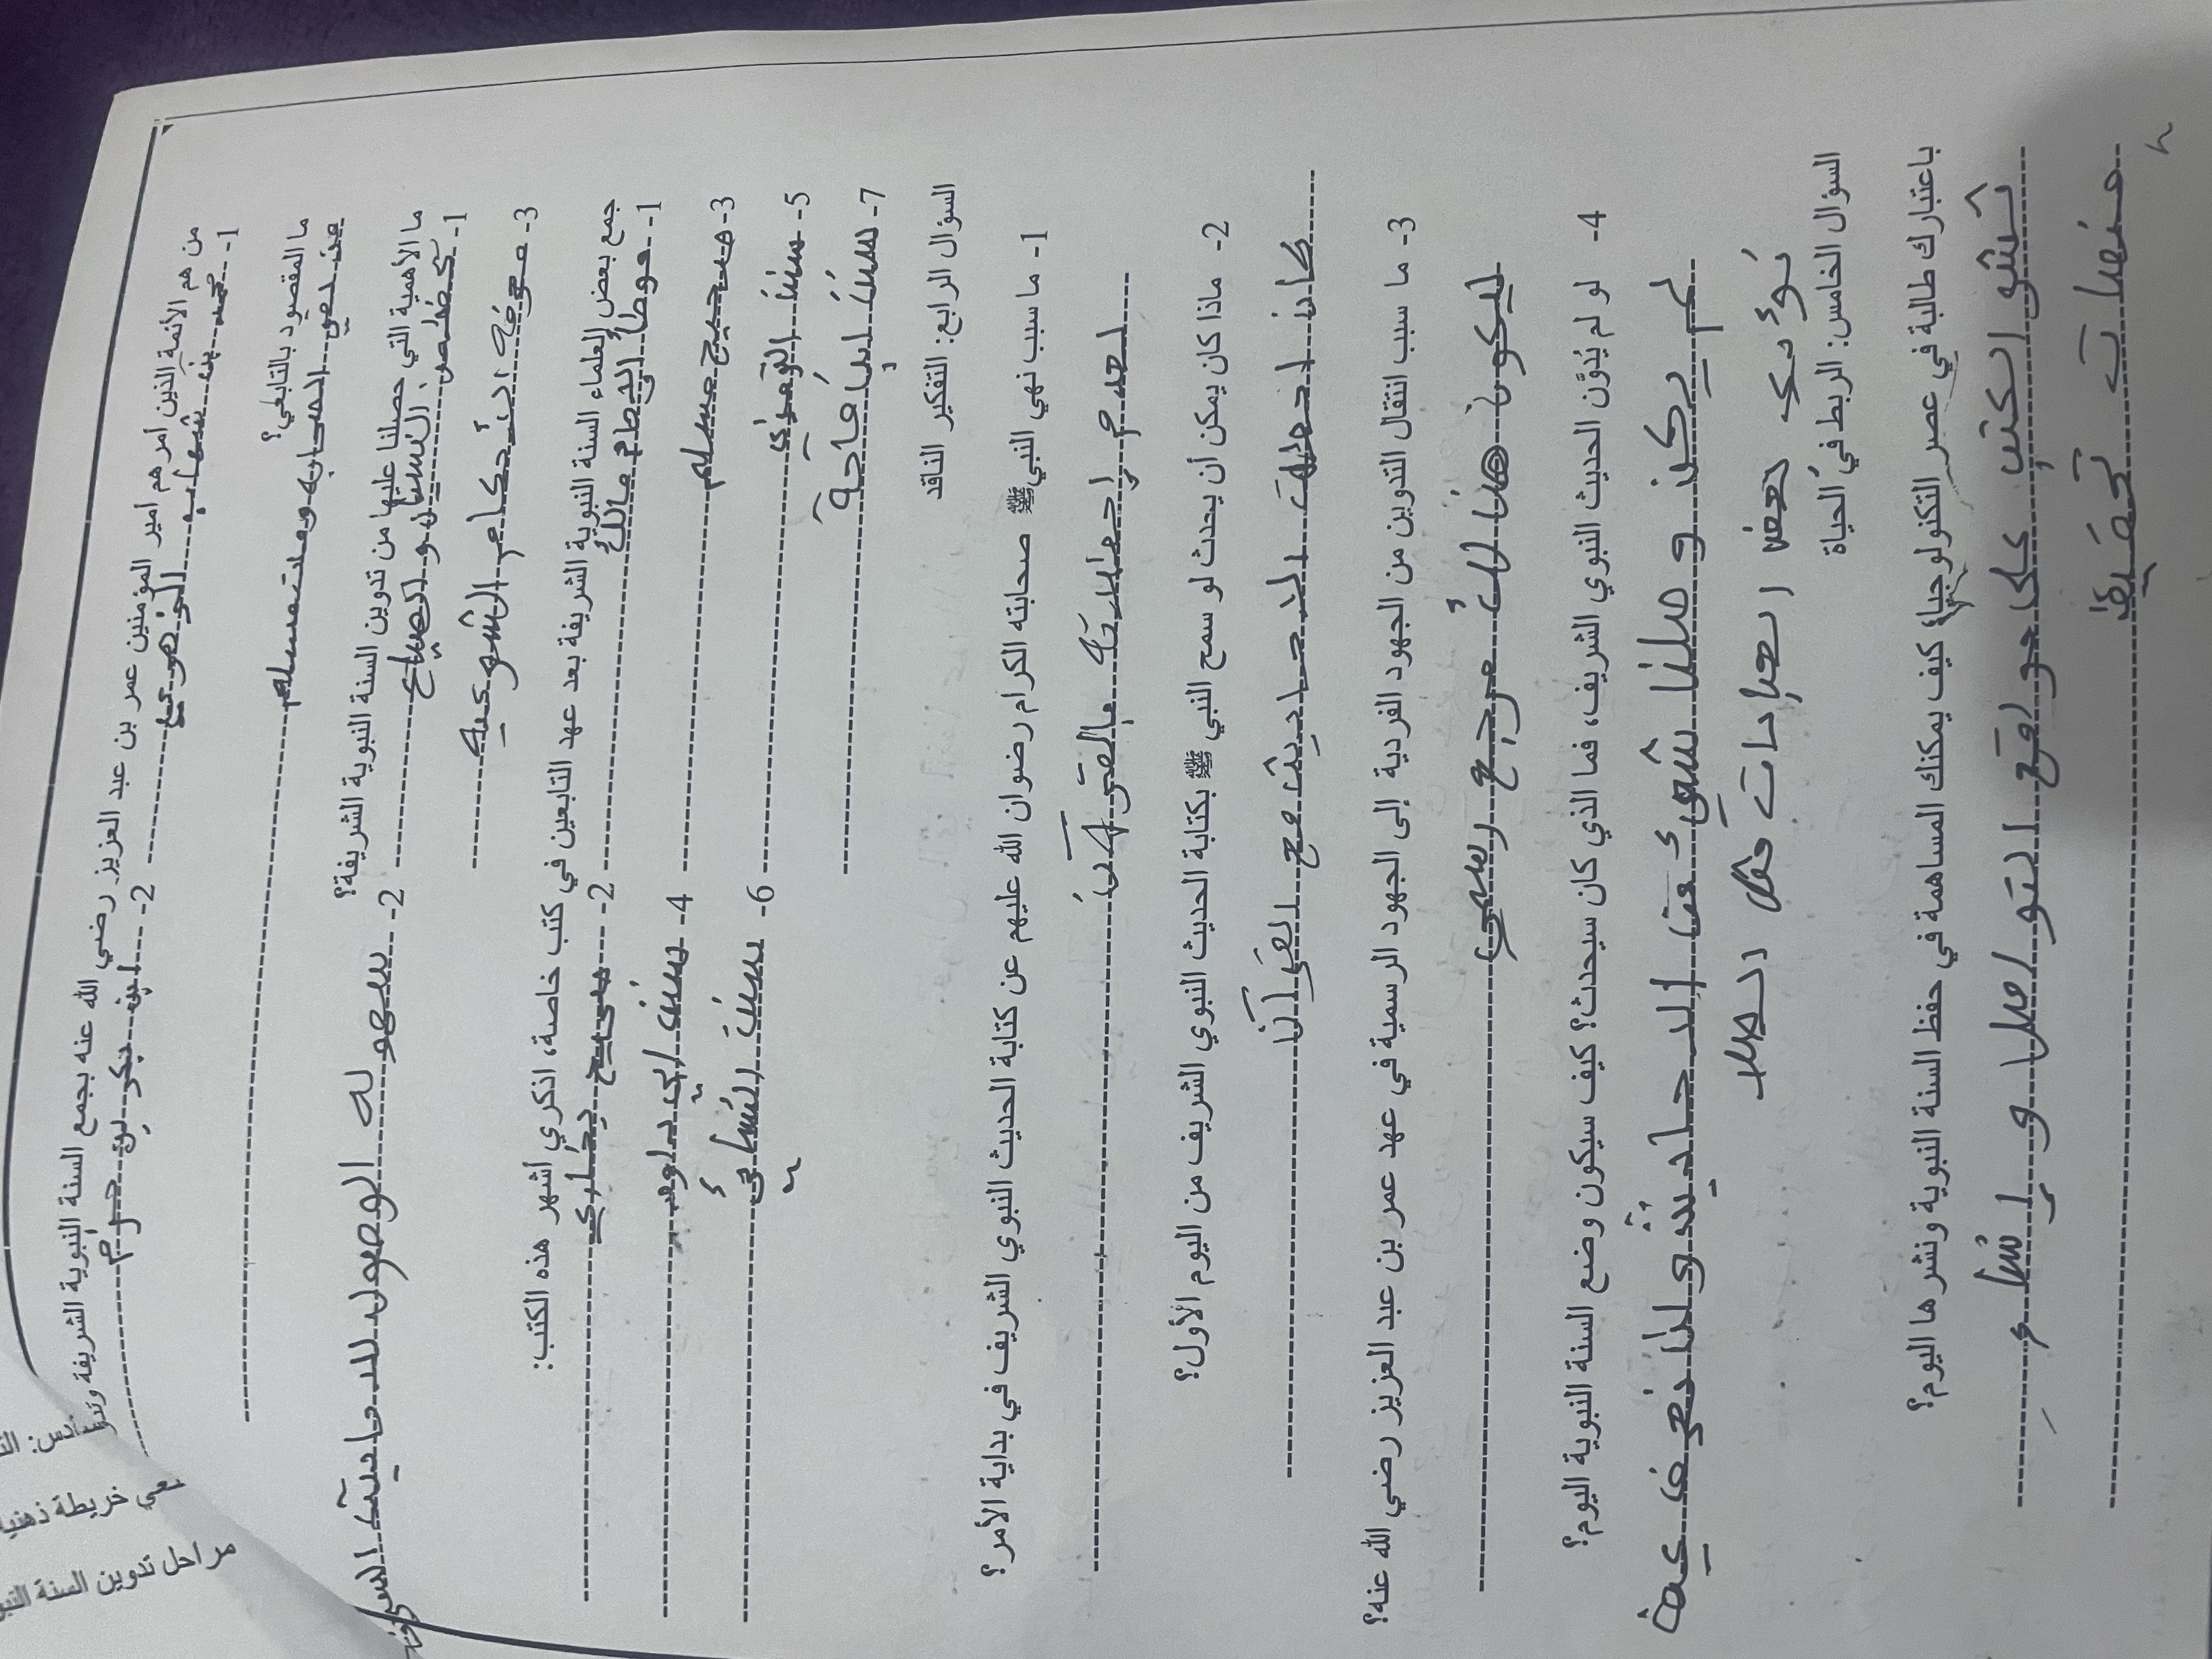 من هم الأئمة الذين أمرهم أمير المؤمنين عمر بن عبد العزيز رضي الله عنه بجمع السنة النبوية الشريفة
1- محمد بن شهاب الزهري
2- ابن بكر بن حزم
ما المقصود بالتابعي؟
من لقي الصحابه ومات مسلم
ما الأهمية التي حصلنا عليها من تدوين السنة النبوية الشريفة؟
1- حفظها من النسيان و الضياع
2- سهوله الوصول للاحاديث
3- معرفة الأحكام الشرعيه
جمع بعض العلماء السنة النبوية الشريفة بعد عهد التابعين في كتب خاصة، اذكري أشهر هذه الكتب:
1- موطأ الإمام مالك
2- صحيح بخاري
3- صحيح مسلم
4- سنن ابي داود
5- سنن الترمذي
6- سنن النسائي
7- سنن ابن ماجة
السؤال الرابع: التفكير الناقد
1- ما سبب نهي النبي ﷺ صحابته الكرام رضوان الله عليهم عن كتابة الحديث النبوي الشريف في بداية الأمر؟
لعدم اختلاطه بالقرآن
2- ماذا كان يمكن أن يحدث لو سمح النبي ﷺ بكتابة الحديث النبوي الشريف من اليوم الأول؟
كان اختلطت الاحاديث مع القرآن
3- ما سبب انتقال التدوين من الجهود الفردية إلى الجهود الرسمية في عهد عمر بن عبد العزيز رضي الله عنه؟
ليكون هنالك مرجع رسمي
4- لو لم يُدوَّن الحديث النبوي الشريف، فما الذي كان سيحدث؟ كيف سيكون وضع السنة النبوية اليوم؟
لم يكن وصلنا شيء من الاحاديث ولا نعرف كيف
نؤدي بعض العبادات مثل الصلاة
السؤال الخامس: الربط في الحياة
باعتبارك طالبة في عصر التكنولوجيا، كيف يمكنك المساهمة في حفظ السنة النبوية ونشرها اليوم؟
نشر الكتب على مواقع التواصل و إنشاء
منصات تحقيق
السادس:
خريطة ذهنية
مراحل تدوين السنة